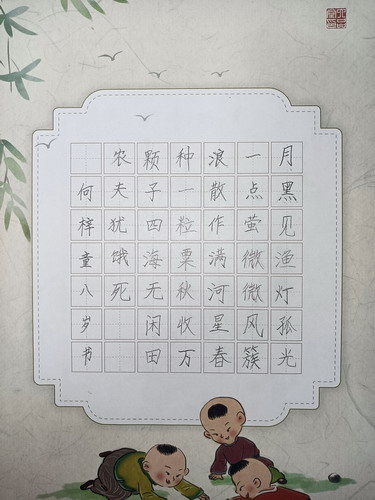 月黑见渔灯孤光
一点萤微微风簇
浪散作满河星春
种一粒粟秋收万
颗子四海无闲田
农夫犹饿死
何梓童八岁书